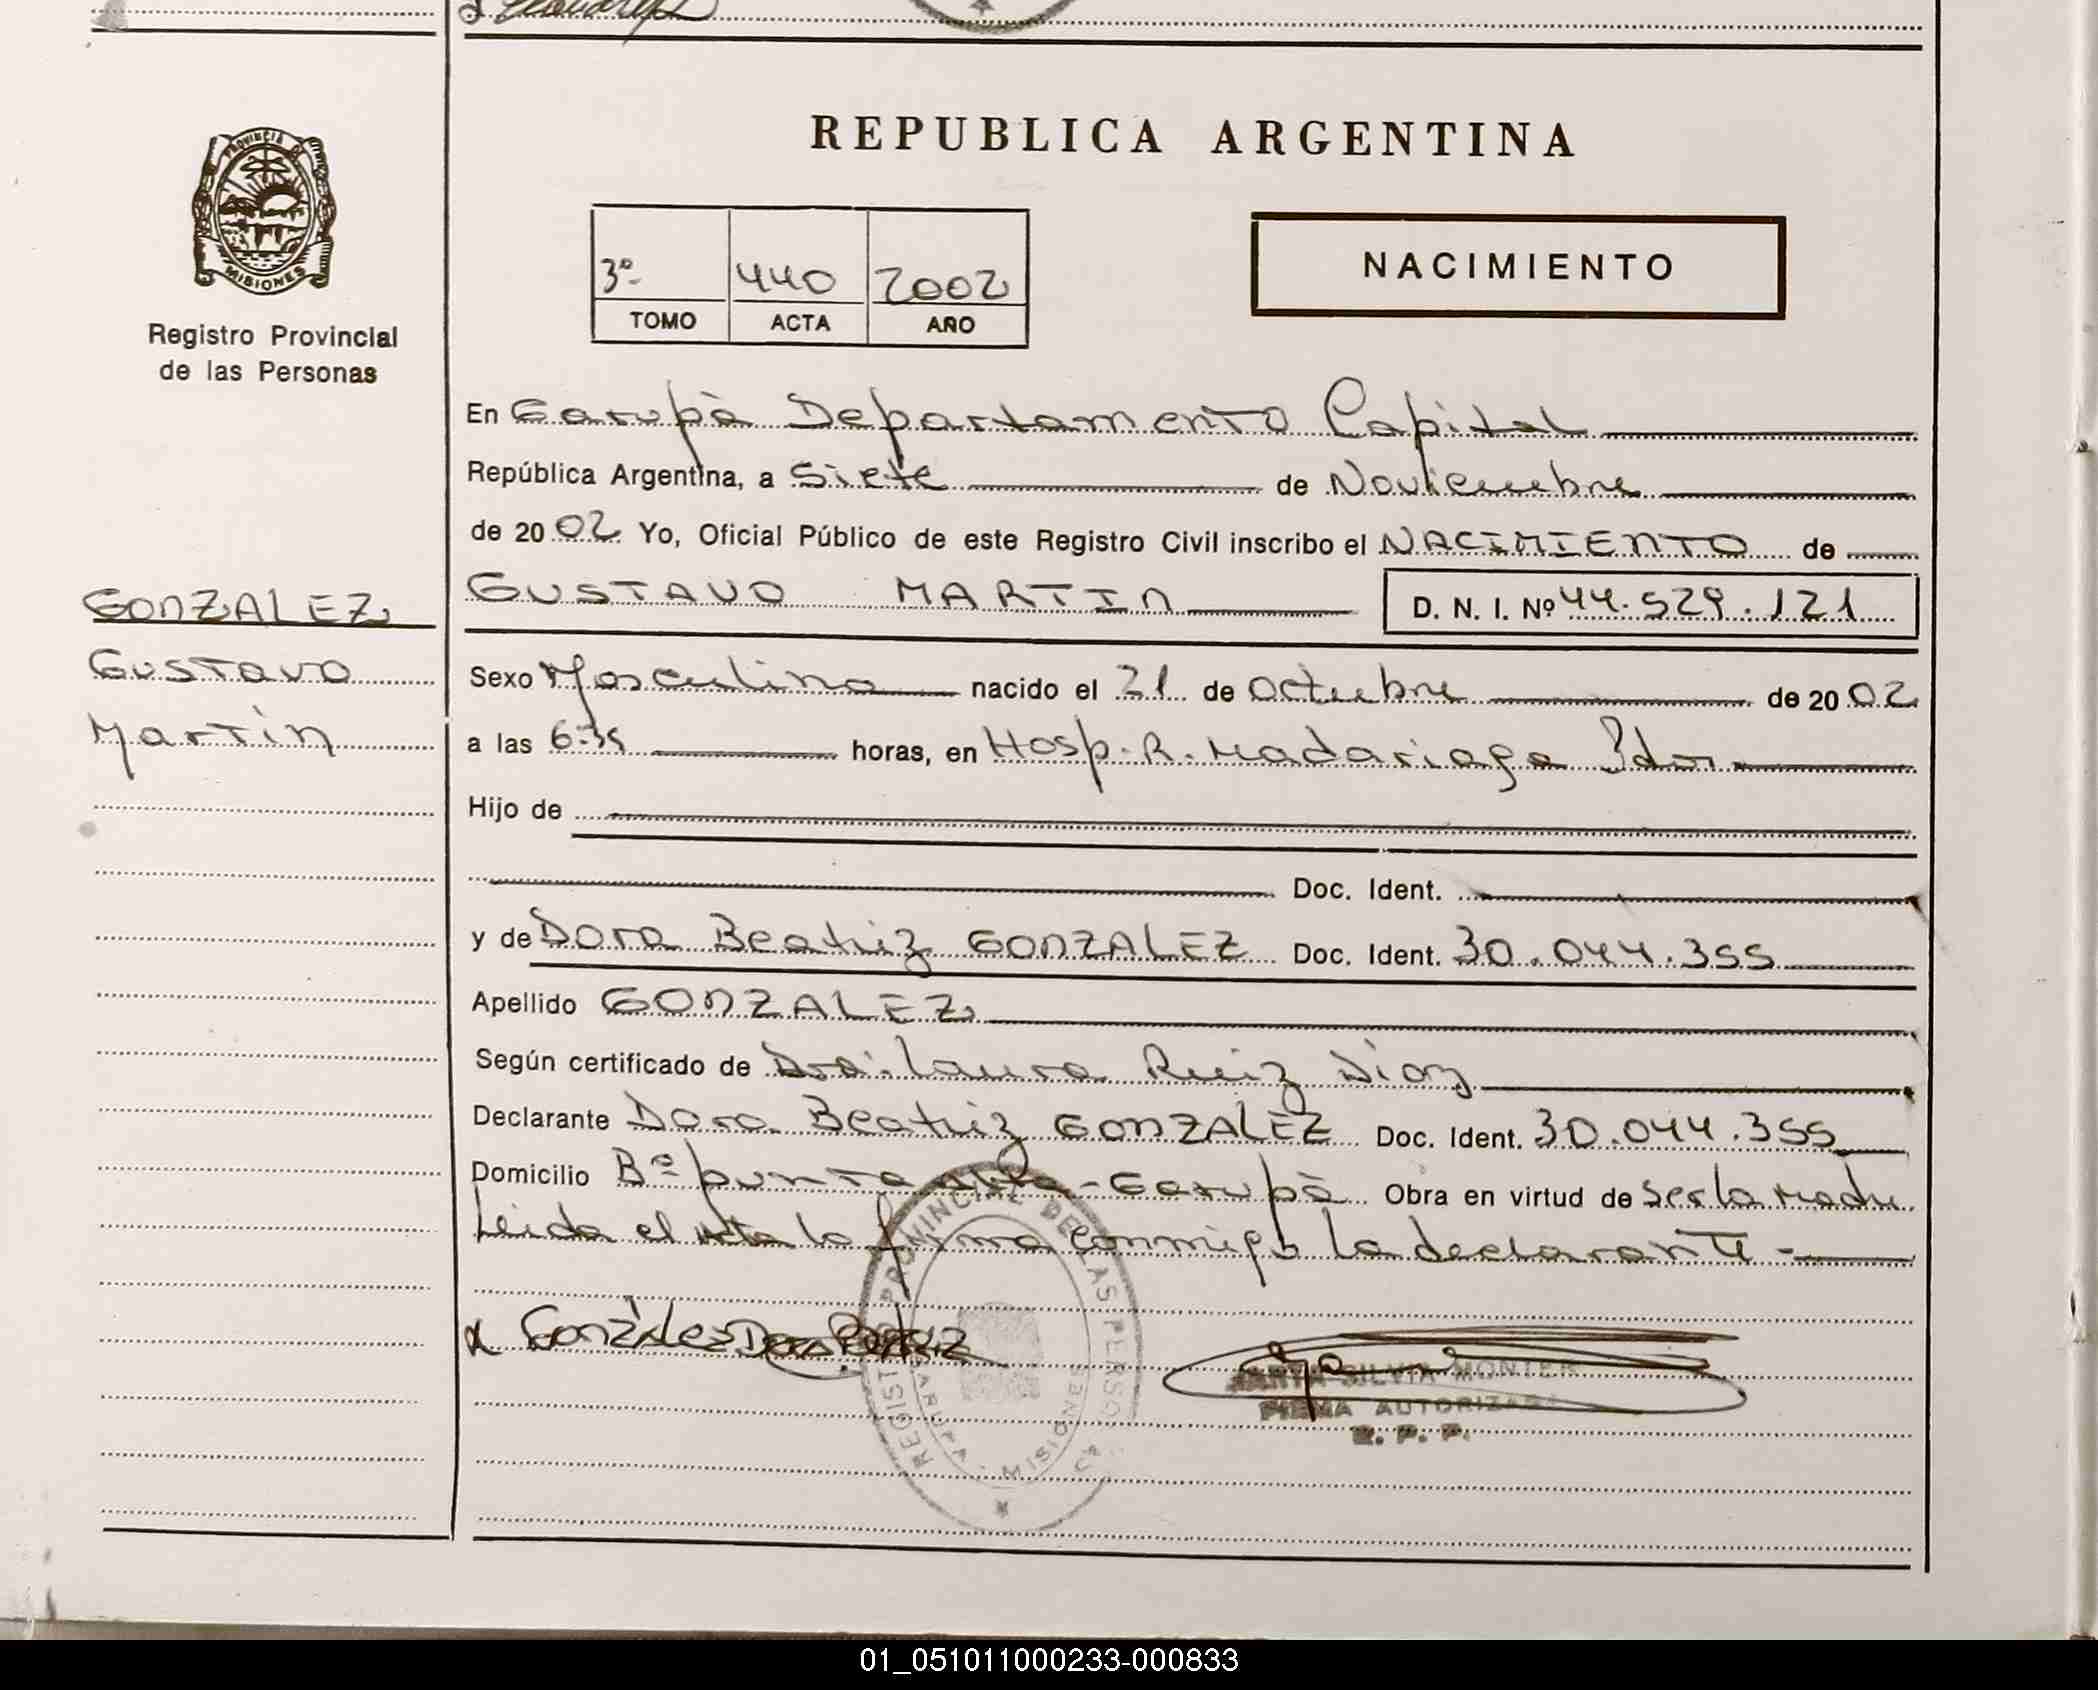 REPUBLICA ARGENTINA
PROVINCIA DE
MISIONES
Registro Provincial
de las Personas
3º
440
2002
TOMO
ACTA
AÑO
NACIMIENTO
En Garupà Departamento Capital
República Argentina, a Siete de Noviembre
de 2002 Yo, Oficial Público de este Registro Civil inscribo el NACIMIENTO de
GONZALEZ
GUSTAVO MARTIN D. N. I. Nº 44.529.121
Gustavo
Martin
Sexo Masculino nacido el 21 de Octubre de 2002
a las 6:35 horas, en Hosp. R. Madariaga Pdas
Hijo de
Doc. Ident.
y de Dora Beatriz GONZALEZ Doc. Ident. 30.044.355
Apellido GONZALEZ
Según certificado de Dra. Laura Ruiz Diaz
Declarante Dora Beatriz GONZALEZ Doc. Ident. 30.044.355
Domicilio Bº punta alta - Garupà Obra en virtud de ser la madre
Leida el acta la firma conmigo la declarante -
González Dora Beatriz
REGISTRO PROVINCIAL DE LAS PERSONAS
GARUPA - MISIONES
MARTA SILVIA MONTER
FIRMA AUTORIZADA
R. P. P.
01_051011000233-000833